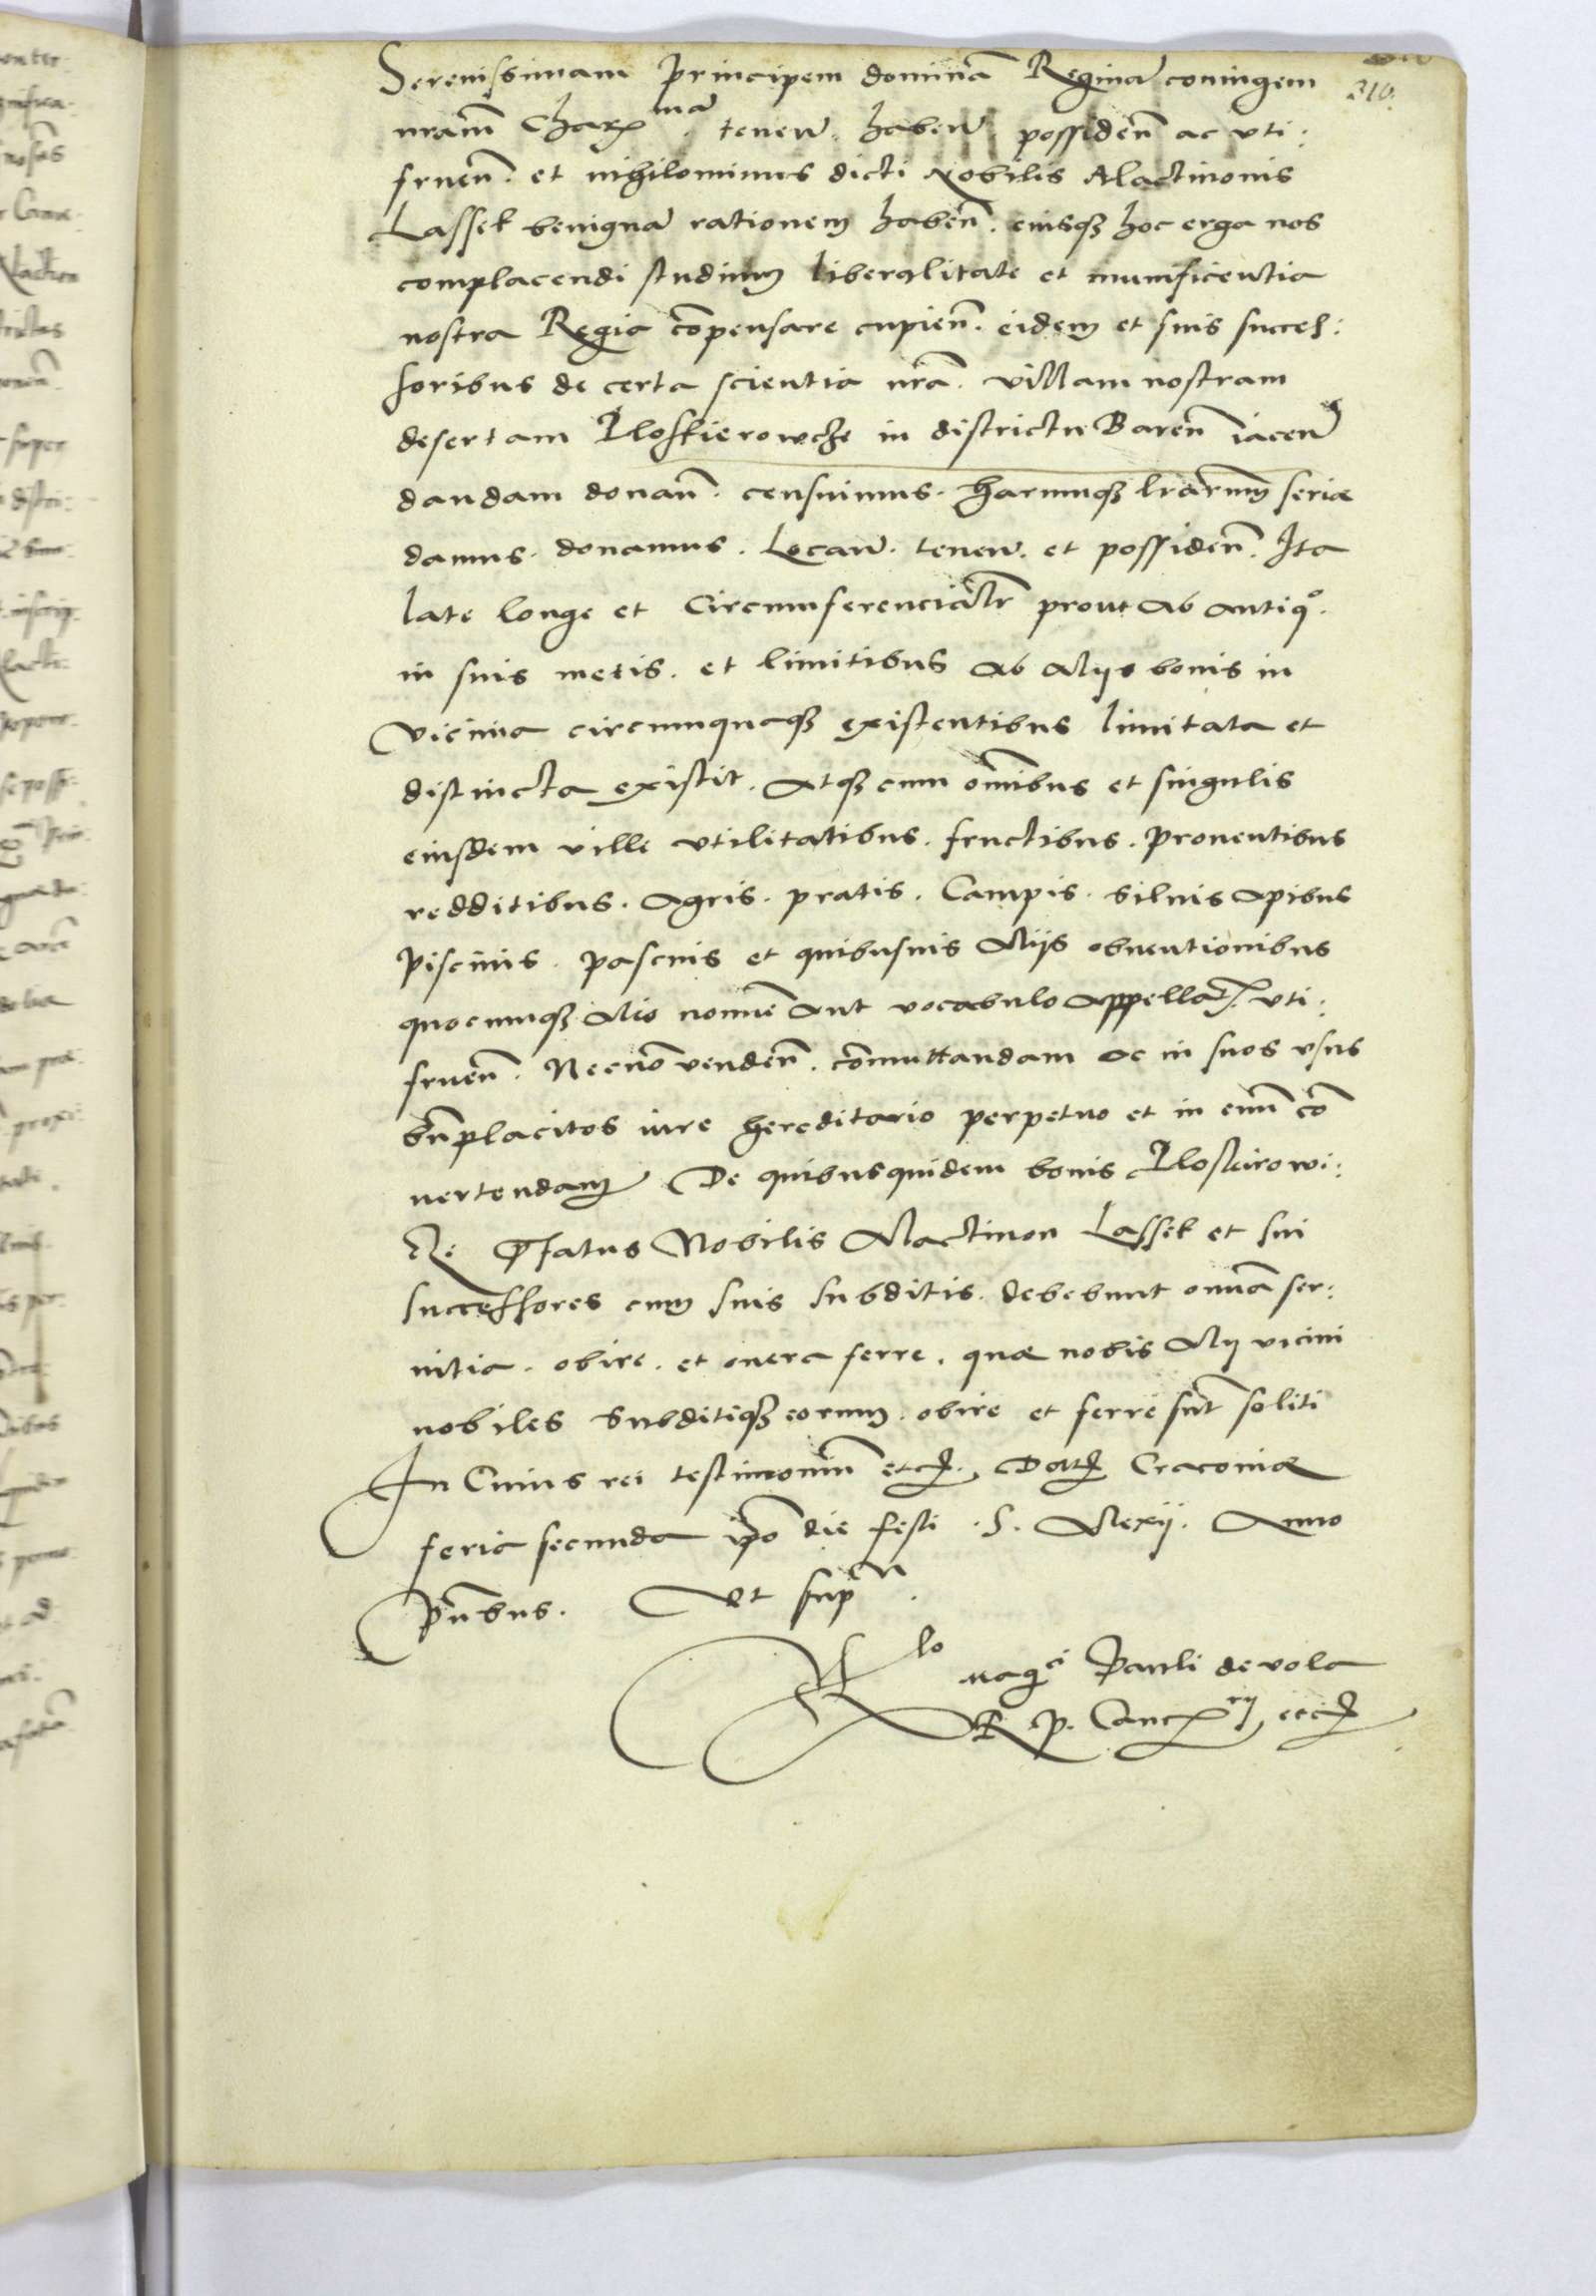 310.
Serenissimam principem dominã Reginã coniugem
nram̃ Charmã. tenen̄. haben̄. possiden̄ ac vti:
fruen̄. et nihilominus dicti Nobilis Alactinonis
Lassek benignã rationem haben̄. eiusq3 hoc erga nos
complacendi studium liberalitate et munificentia
nostra Regia cõpensare cupien̄. eidem et suis succes:
soribus de certa scientia nrã. villam nostram
desertam Ploskierowcze in districtu Baren̄ iacen̄
dandam donan̄. censuimus. harumq3 lrãrum serie
damus. donamus. Locan̄. tenen̄. et possiden̄. Ita
late longe et Circumferencialr̃ prout ab antiqº.
in suis metis. et limitibus ab alijs bonis in
vicinia circumquaq3 existentibus limitata et
distincta existit. atq3 cum om̃ibus et singulis
eiusdem ville vtilitatibus. fructibus. prouentibus
redditibus. agris. pratis. Campis. siluis apibus
piscinis. pascuis et quibusuis alijs obuentionibus
quocumq3 alio nomine aut vocabulo appellat. vti:
fruen̄. Necnõ venden̄. cõmuttandam ac in suos vsus
bn̄placitos iure hereditario perpetuo et in euum cõ
uertendam De quibusquidem bonis Ploskirowi:
cze Pfatus Nobilis Alactinon Lassek et sui
successores cum suis subditis. debebunt omnia ser:
uitia. obire. et onera ferre. quæ nobis alij vicini
nobiles subditiq3 eorum. obire et ferre sũt soliti
In Cuius rei testimonium etc. Dat Cracouiæ
feria secunda ip̃o die festi .S. Alexij. Anno
Pn̄tibus. Vt supra.
Rlo magci Pauli de vola
R. P. Cancrij etc